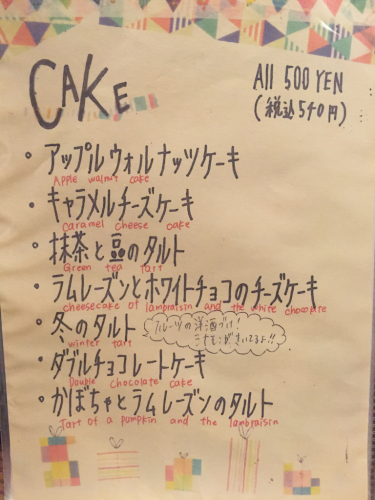 CAKE
All 500 YEN
(税込540円)
・アップルウォルナッツケーキ
Apple walnut cake
・キャラメルチーズケーキ
Caramel cheese cake
・抹茶と豆のタルト
Green tea tart
・ラムレーズンとホワイトチョコのチーズケーキ
cheesecake of lambraisin and the white chocolate
・冬のタルト
winter tart
フルーツの洋酒づけ!
シナモンがきいてるよ!!
・ダブルチョコレートケーキ
Double chocolate cake
・かぼちゃとラムレーズンのタルト
Tart of a pumpkin and the lambraisin